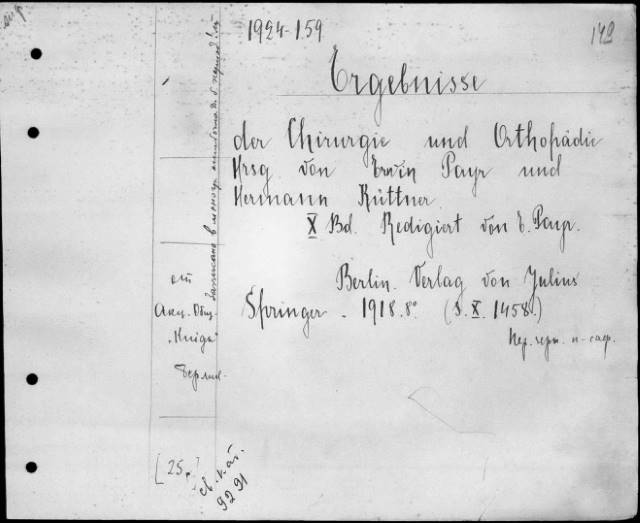 1924-159
Ergebnisse
der Chirurgie und Orthopädie
Hrsg von Erwin Payr und
Hermann Küttner
X Bd. Redigiert von E. Payr.
Berlin. Verlag von Julius
Springer - 1918. 8° (S. X. 1458.)
от
Акц. Общ.
"Книга"
Берлин.
[25,]
св. кат.
9291